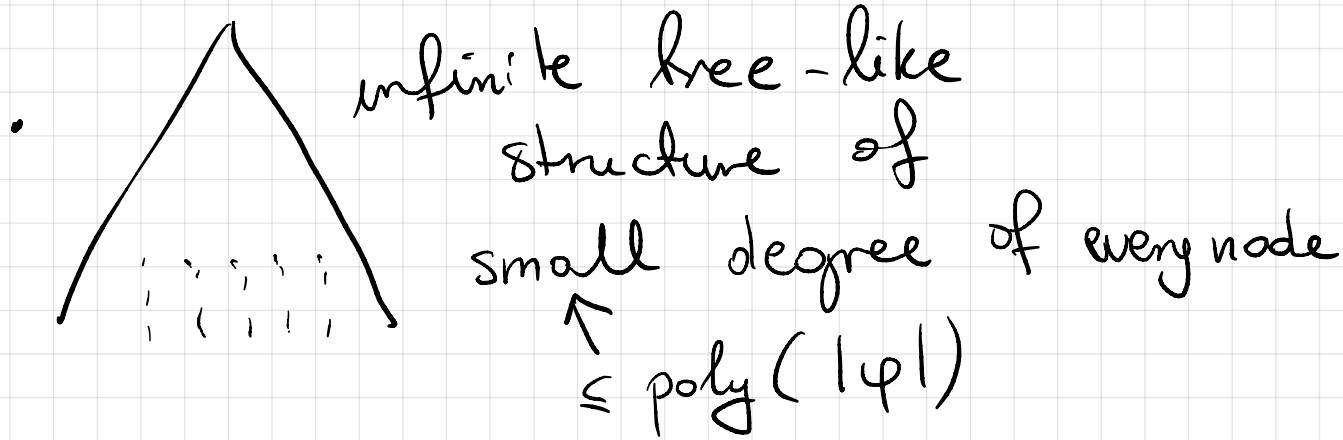 infinite tree-like
structure of
small degree of every node
≤ poly(|φ|)